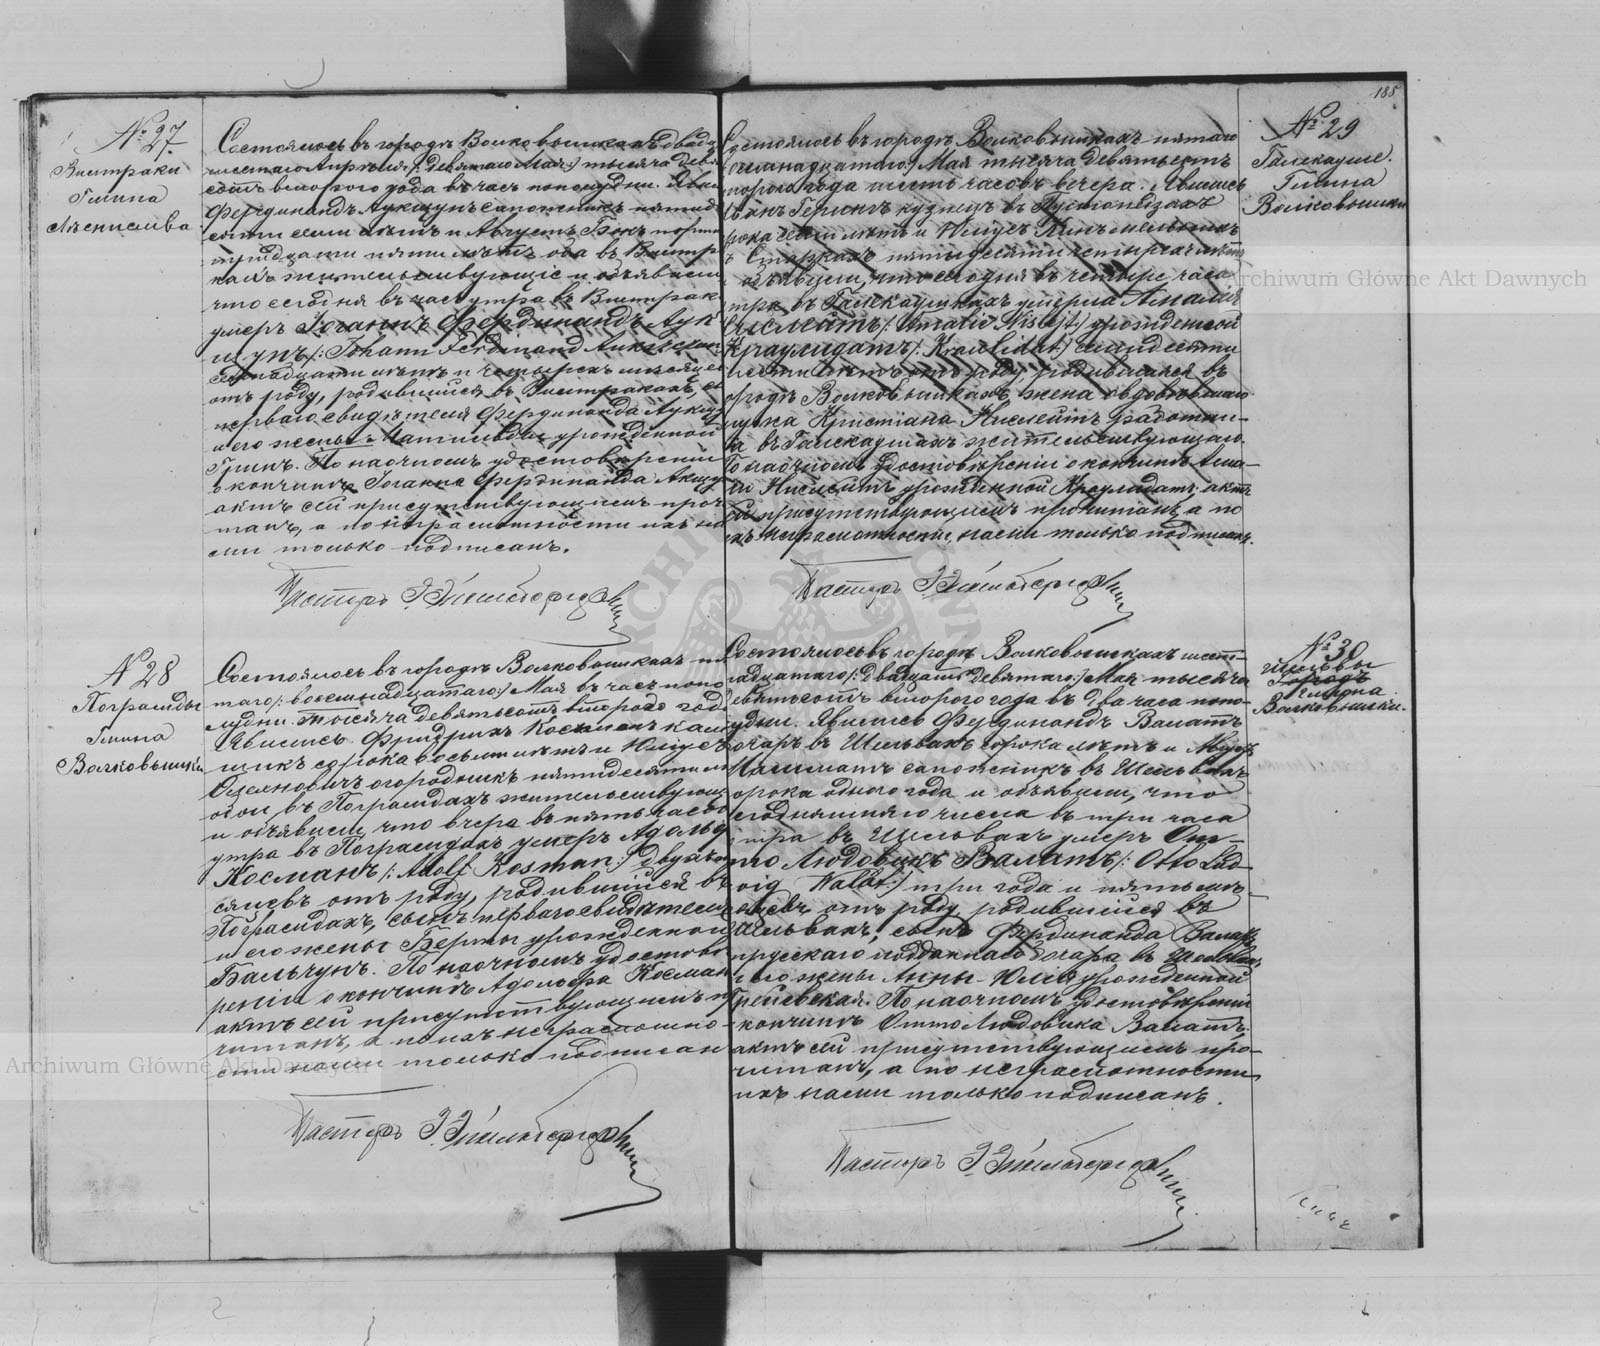 188
№ 27
Вистраки
Гмина
Состоялось въ городѣ Волковышкахъ двадцать
шестаго Апрѣля /:девятаго Мая:/ тысяча девять
сотъ втораго года въ часъ пополудни. Явились
Фердинандъ Аукщунъ сапожникъ пятиде
сяти семи лѣтъ и Августъ Бокъ
тридцати пяти лѣтъ оба въ Вистра
кахъ жительствующіе и объявили
что сегодня въ часъ утра въ Вистрак
умеръ Іоганнъ Фердинандъ Аук
щунъ /:Johann Ferdinand
лѣтъ и четырехъ мѣсяцевъ
отъ роду, родившійся въ Вистракахъ, сынъ
перваго свидѣтеля Фердинанда Аукщу
и его жены Матильды урожденной
Гринъ. По наочномъ удостовѣреніи
о кончинѣ Іоганна Фердинанда Аукщу
актъ сей присутствующимъ проч
танъ, а по неграмотности ихъ на
ми только подписанъ.
Пасторъ
№ 28
Пограмды
Гмина
Волковышки
Состоялось въ городѣ Волковышкахъ пя
таго /:восемнадцатаго:/ Мая въ часъ попо
лудни тысяча девятьсотъ втораго года
Явились Фридрихъ Косманъ камен
щикъ сорока восьми лѣтъ и Юліусъ
огородникъ пятидесяти
въ Пограмдахъ жительствующ
и объявили, что вчера въ пять часовъ
утра въ Пограмдахъ умеръ Адольфъ
Косманъ /:Adolf Kosman:/ двухъ мѣ
сяцевъ отъ роду, родившійся въ
Пограмдахъ, сынъ перваго свидѣтеля
и его жены Берты урожденной
Бальчунъ. По наочномъ удостовѣ
реніи о кончинѣ Адольфа Косман
актъ сей присутствующимъ про
читанъ, а по ихъ неграмотно
сти нами только подписан
Пасторъ
№ 29
Гмина
Волковышки
Состоялось въ городѣ Волковышкахъ пятаго
/:осемнадцатаго:/ Мая тысяча девятьсотъ
втораго года шесть часовъ вечера. Явились
Иванъ Герингъ кузнецъ въ
сорока семи лѣтъ и Юліусъ
въ Старкахъ пятидесяти четырехъ лѣтъ
и объявили, что сегодня въ четыре часа
утра въ умерла Амалія
/:Amalie
урожденной
Крауледатъ /:Krauledat:/ семидесяти
шести лѣтъ отъ роду, родившаяся въ
городѣ Волковышкахъ, жена овдовѣвшаго
мужа Христіана работни
ка въ жительствующаго.
По наочномъ удостовѣреніи о кончинѣ Ама
ліи урожденной Крауледатъ, актъ
сей присутствующимъ прочитанъ, а по
ихъ неграмотности, нами только подписанъ.
Пасторъ
№ 30
Шельвы
Гмина
Волковышки.
Состоялось въ городѣ Волковышкахъ шест
надцатаго /:двадцать девятаго:/ Мая тысяча
девятьсотъ втораго года въ два часа попо
лудни. Явились Фердинандъ Валатъ
въ Шельвахъ сорока лѣтъ и
сапожникъ въ Шельвахъ
сорока одного года и объявили, что
сегодняшняго числа въ три часа
утра въ Шельвахъ умеръ От
то Людовикъ Валатъ /:Otto Lud
wig Walat:/ три года и пять мѣ
сяцевъ отъ роду, родившійся въ
Шельвахъ, сынъ Фердинанда Валатъ
прусскаго подданнаго въ Шельвахъ
и его жены Анны Юліи урожденной
По наочномъ удостовѣреніи
кончинѣ Отто Людовика Валатъ,
актъ сей присутствующимъ про
читанъ, а по неграмотности
ихъ нами только подписанъ.
Пасторъ
Archiwum Główne Akt Dawnych
Archiwum Główne Akt Dawnych